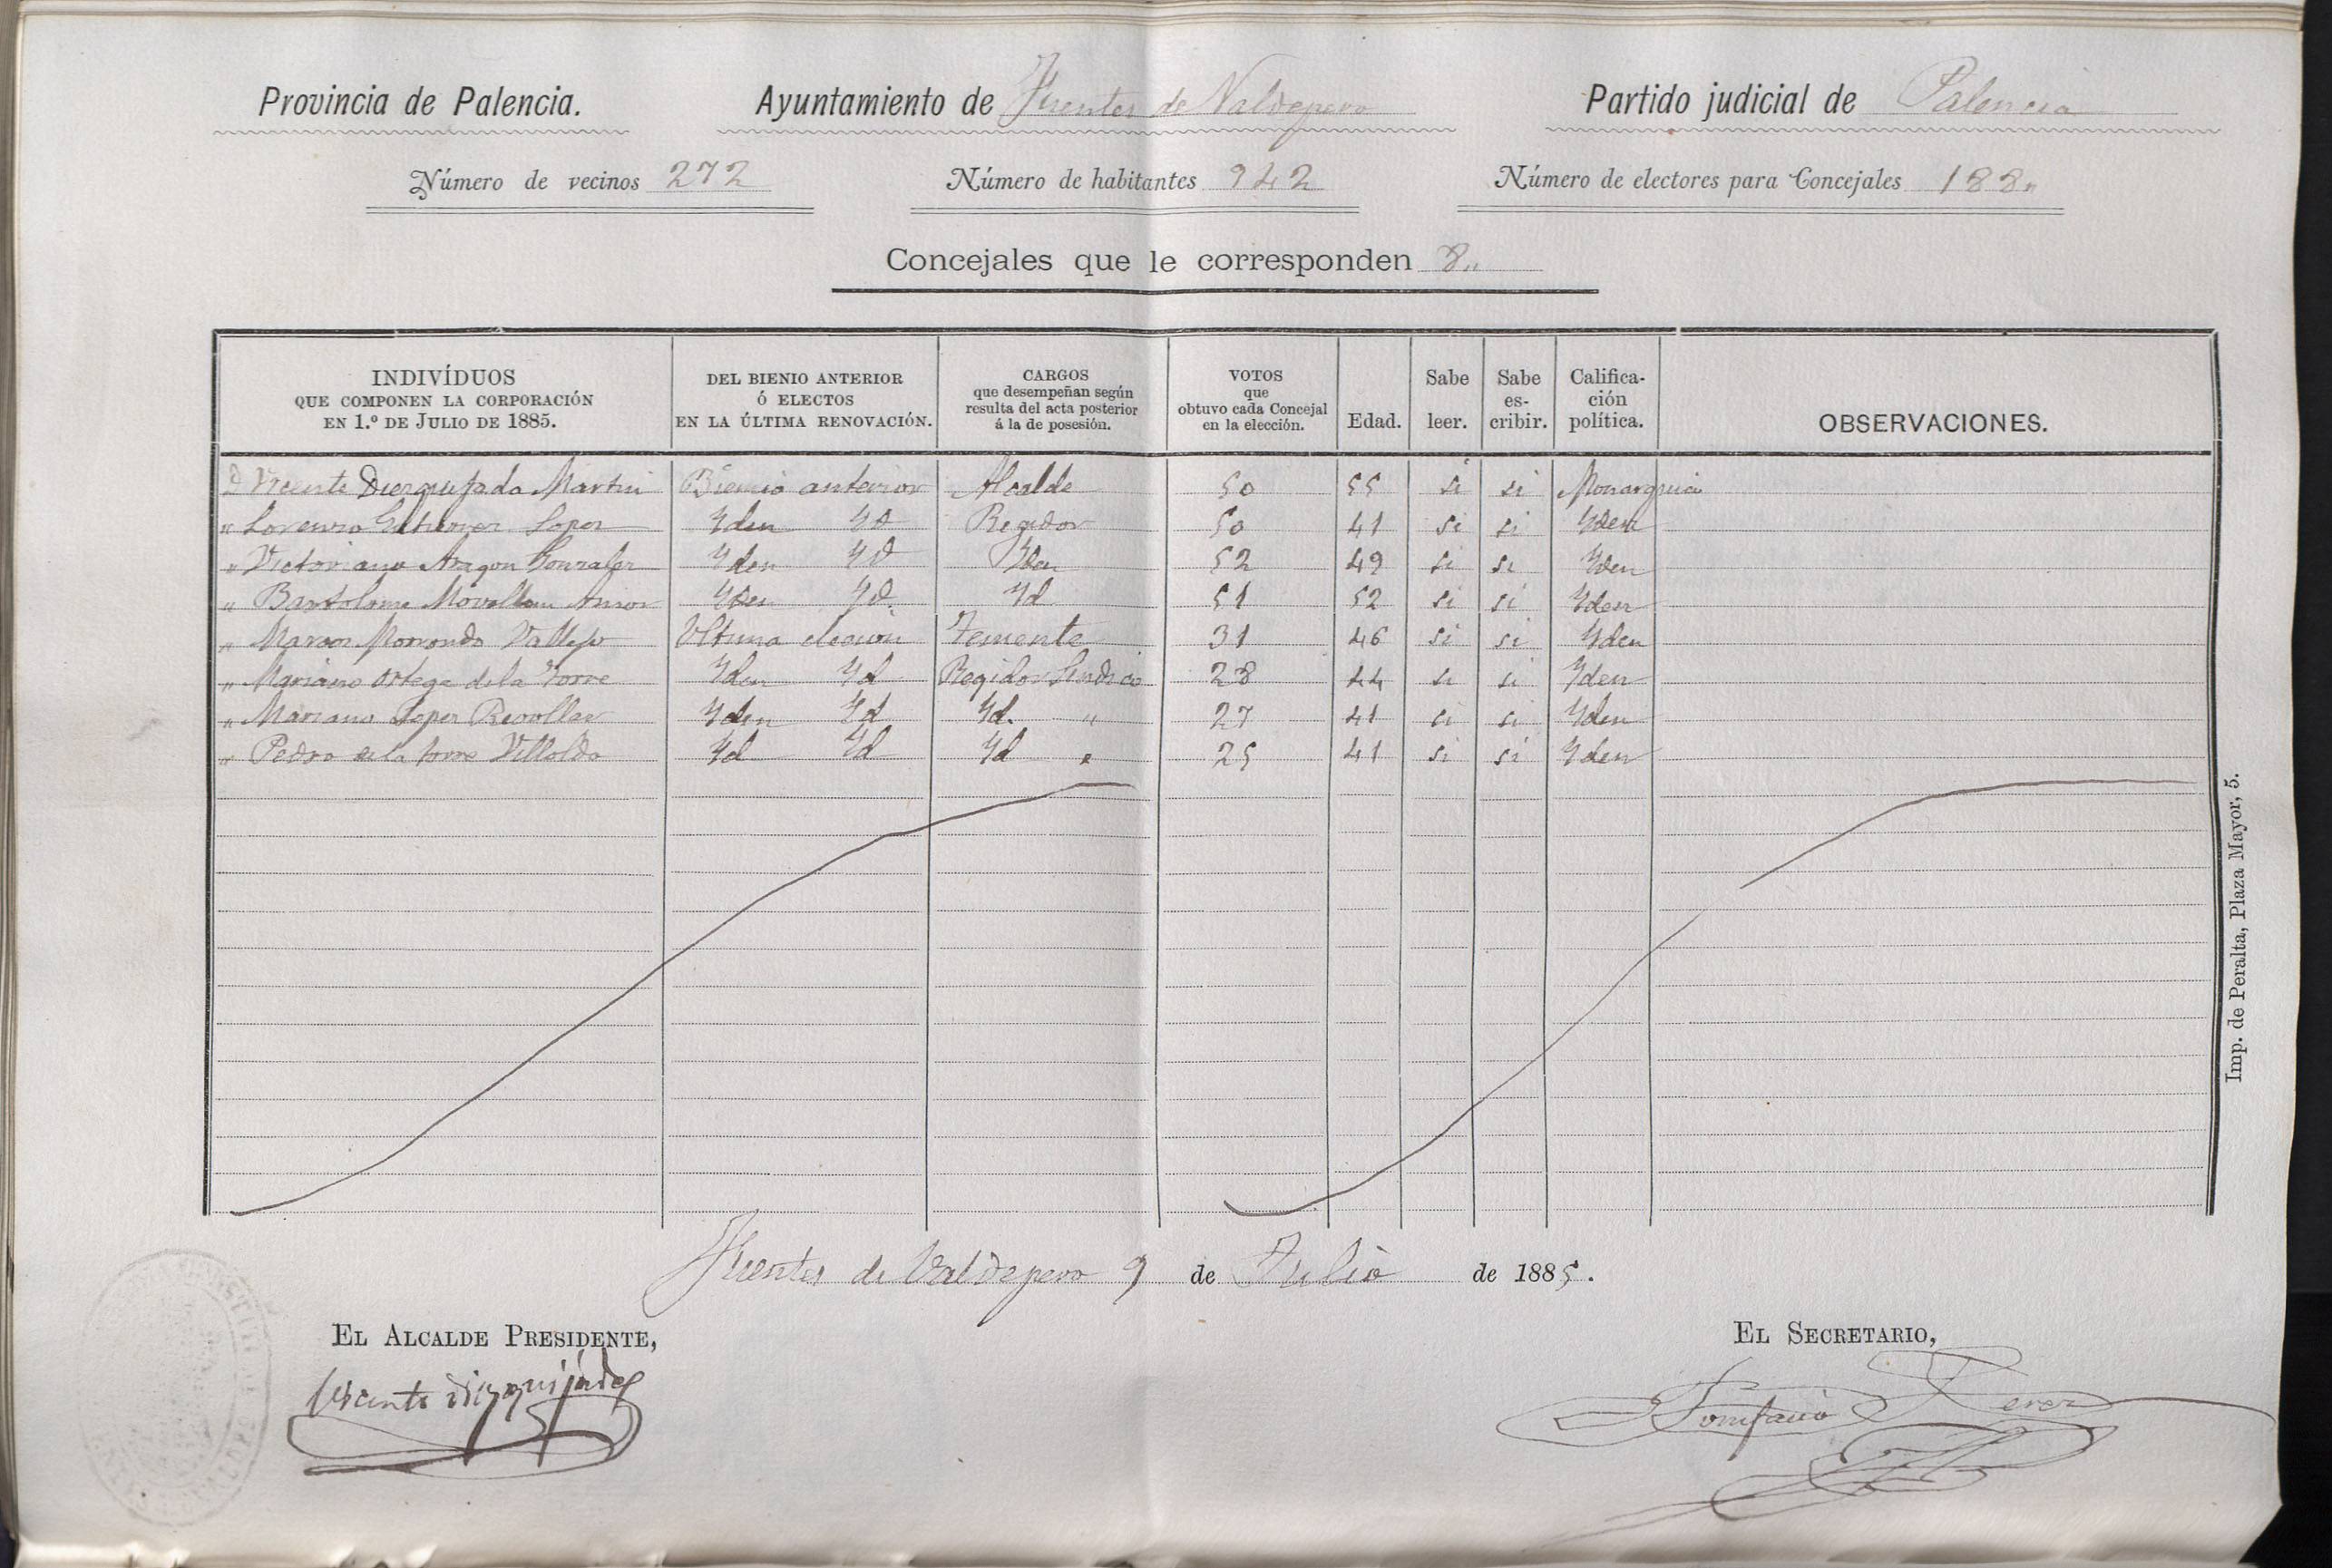 Provincia de Palencia. Ayuntamiento de Fuentes de Valdepero Partido judicial de Palencia
Número de vecinos 272 Número de habitantes 942 Número de electores para Concejales 188"
Concejales que le corresponden 8"
INDIVÍDUOS QUE COMPONEN LA CORPORACIÓN EN 1.º DE JULIO DE 1885. DEL BIENIO ANTERIOR Ó ELECTOS EN LA ÚLTIMA RENOVACIÓN. CARGOS que desempeñan según resulta del acta posterior á la de posesión. VOTOS que obtuvo cada Concejal en la elección. Edad. Sabe leer. Sabe es-cribir. Califica-ción política. OBSERVACIONES.
D Vicente Diezquijada Martin Bienio anterior Alcalde 50 55 si si Monarquico
" Lorenzo Gutierrez Lopez Yden Yd Regidor 50 41 si si Yden
" Victoriano Aragon Gonzalez Yden Yd Yden 52 49 si si Yden
" Bartolome Yden Yd Yd 51 52 si si Yden
" Marcos Monzondo Vallejo Ultima eleccion Teniente 31 46 si si Yden
" Mariano Ortega de la Torre Yden Yd Regidor Sindico 28 44 si si Yden
" Mariano Lopez Revollar Yden Yd Yd. " 27 41 si si Yden
" Pedro de la torre Villolda Yd Yd Yd " 25 41 si si Yden
Imp. de Peralta, Plaza Mayor, 5.
Fuentes de Valdepero 9 de Julio de 1885.
EL ALCALDE PRESIDENTE, EL SECRETARIO,
Vicente Diezquijada Bonifacio Perez